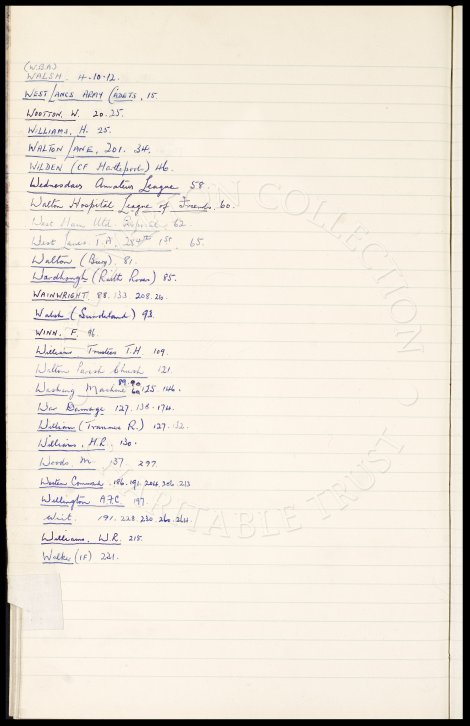 (W.B.A)
WALSH. 4.10.12.
WEST LANCS ARMY CADETS, 15.
WOOTTON. W. 20.25.
WILLIAMS, H. 25.
WALTON LANE, 201. 34.
WILDEN (CF Hartlepools) 46.
Wednesdays Amateur League 58.
Walton Hospital League of Friends. 60.
West Ham Utd. 62
West Lancs. T.A. 1st 65.
Walton (Bury). 81.
Wardhough (Raith Rovers) 85.
WAINWRIGHT. 88. 133 208.
Walsh (Sunderland) 93.
WINN. F. 96.
Williams Trustees T.H. 109.
Walton Parish Church 121.
Washing Machine 89. 90 125 146.
War Damage 127. 138. 174.
William (Tranmere R.) 127. 132.
Williams, H.R. 130.
Woods. M. 137. 277.
Western Command. 186. 191. 204. 213
Wellington A.F.C. 197.
191. 223. 230. 260. 264.
Williams, W.R. 215.
Walker 221.
COLLECTION
CHARITABLE TRUST